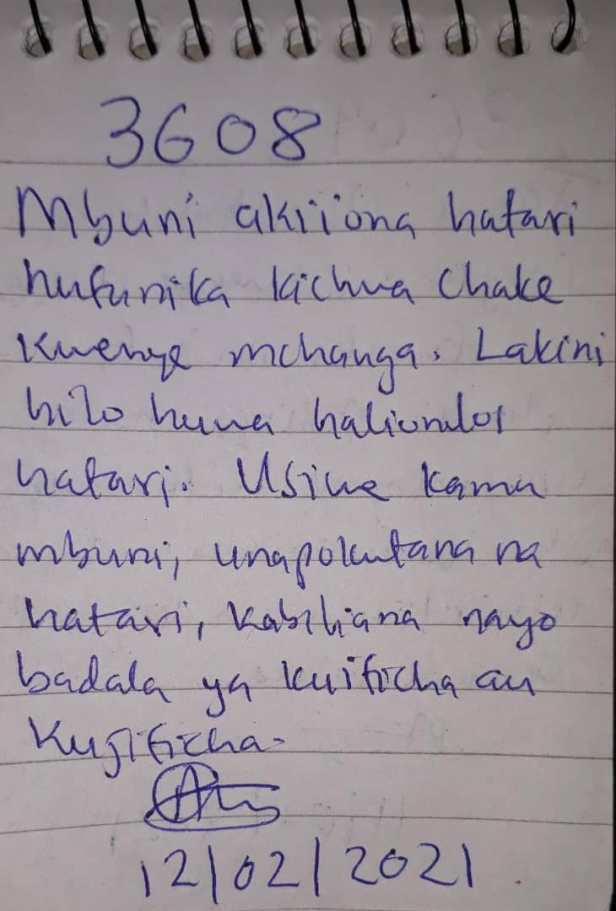 3608
Mbuni akiiona hatari
hufunika kichwa chake
kwenye mchanga. Lakini
hilo huwa haliondoi
hatari. Usiwe kama
mbuni, unapokutana na
hatari, kabiliana nayo
badala ya kuificha au
kujificha.
12/02/2021